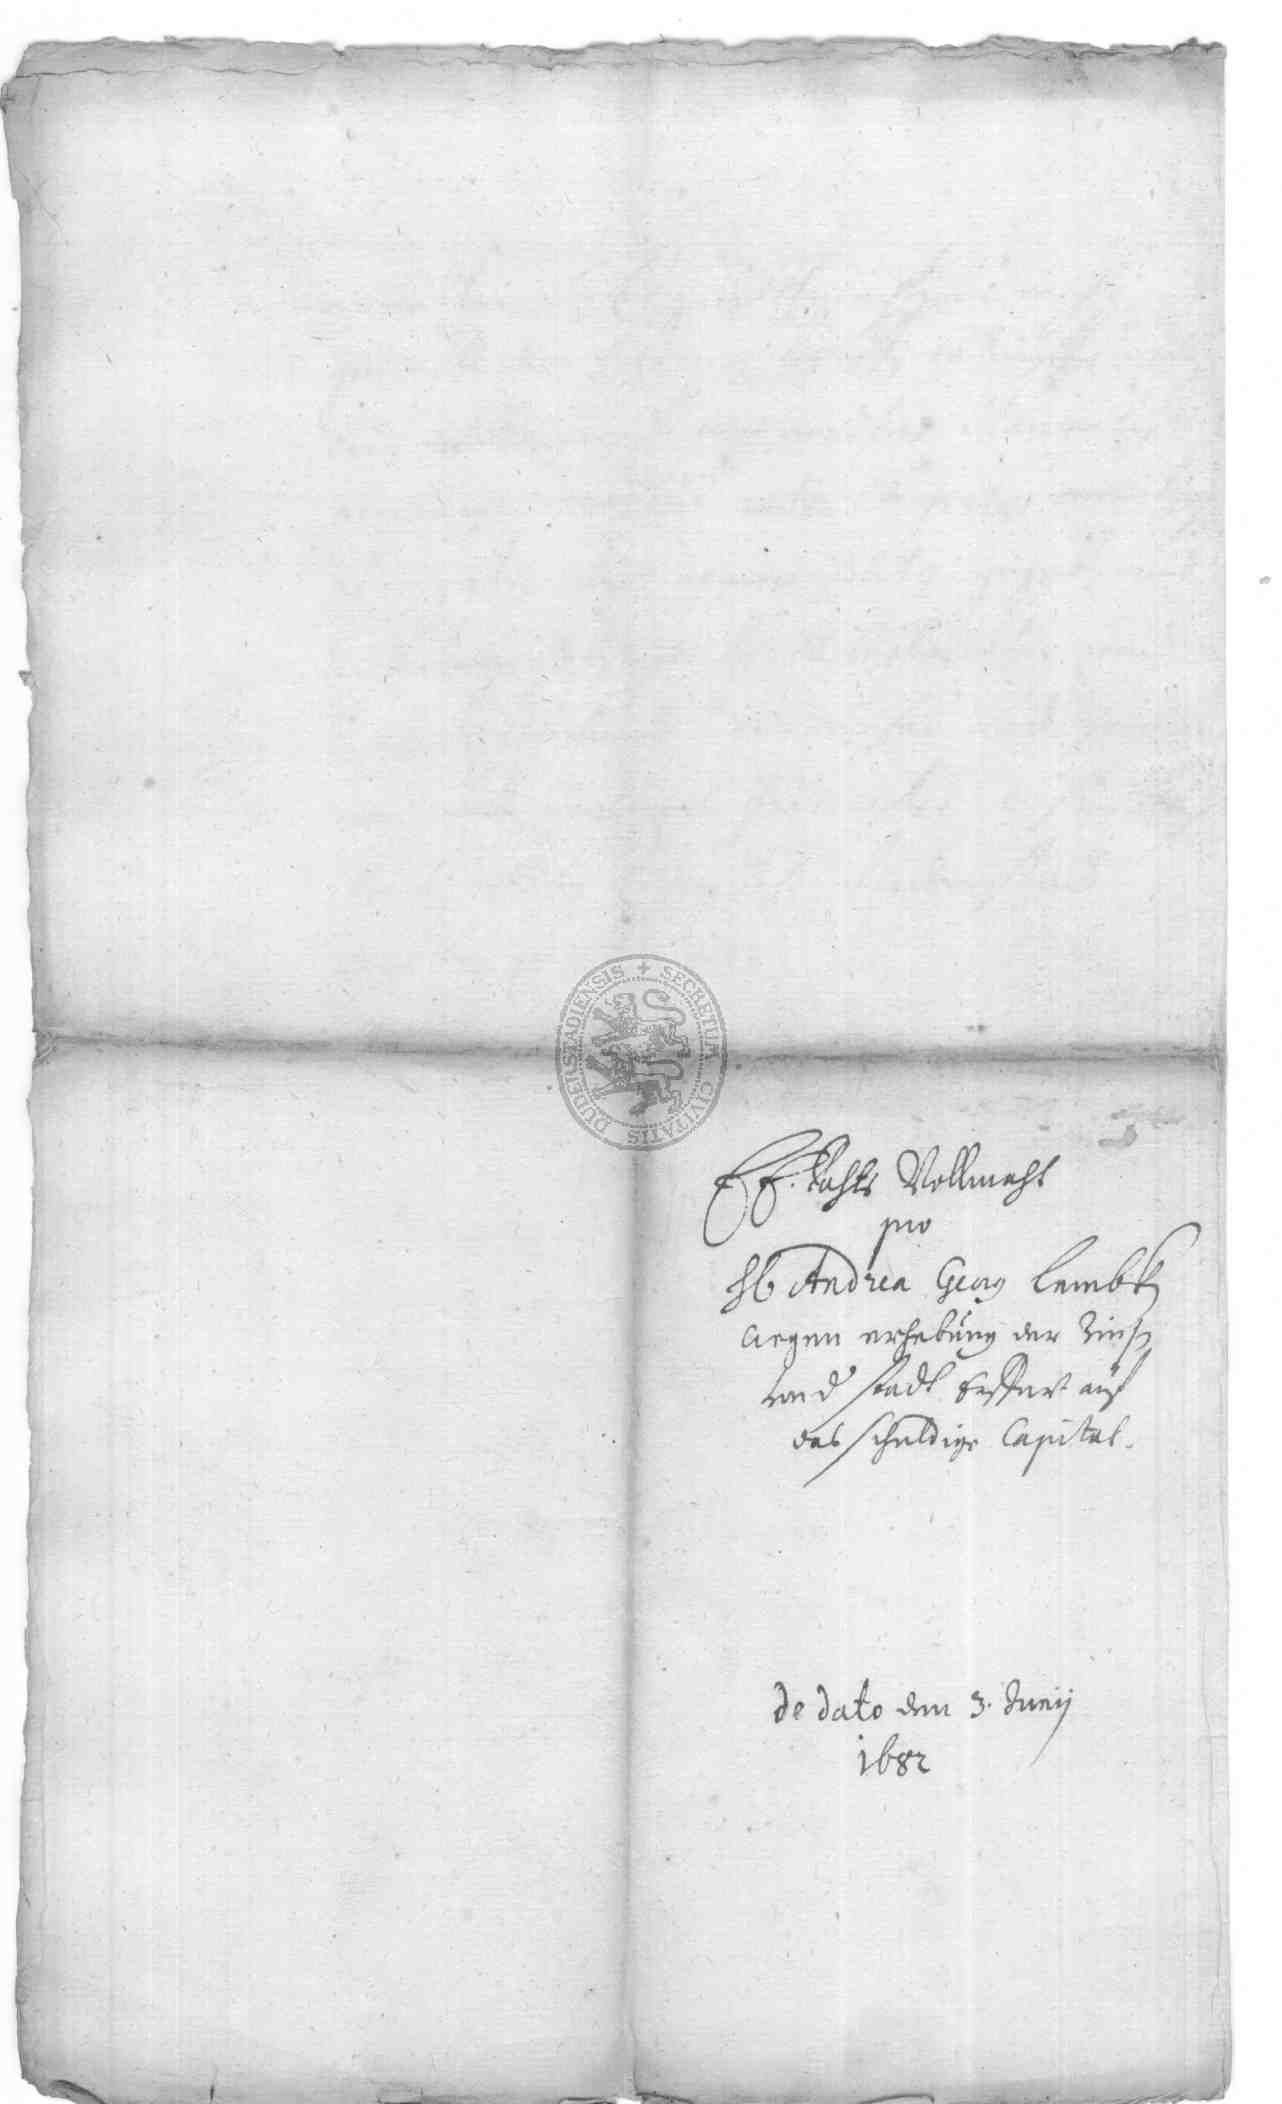 DUDERSTADIENSIS + SECRETUM CIVITATIS
E. E. Rahts Vollmacht
pro
H. Andrea Georg Lembke
wegen erhebung der Zinsen
und Stadt Erffurt auf
das schuldige Capital.
de dato den 3. Junij
1682